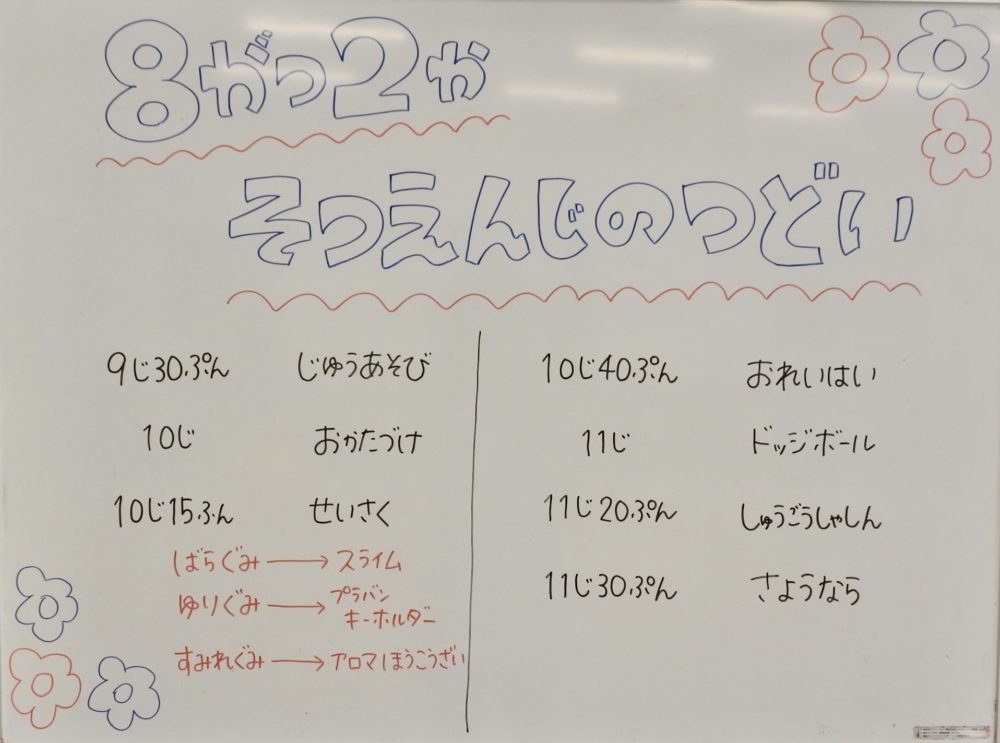 8がつ2か
そつえんじのつどい
9じ30ぷん じゆうあそび
10じ おかたづけ
10じ15ふん せいさく
ばらぐみ→スライム
ゆりぐみ→プラバン
キーホルダー
すみれぐみ→アロマほうこうざい
10じ40ぷん おれいはい
11じ ドッジボール
11じ20ぷん しゅうごうしゃしん
11じ30ぷん さようなら